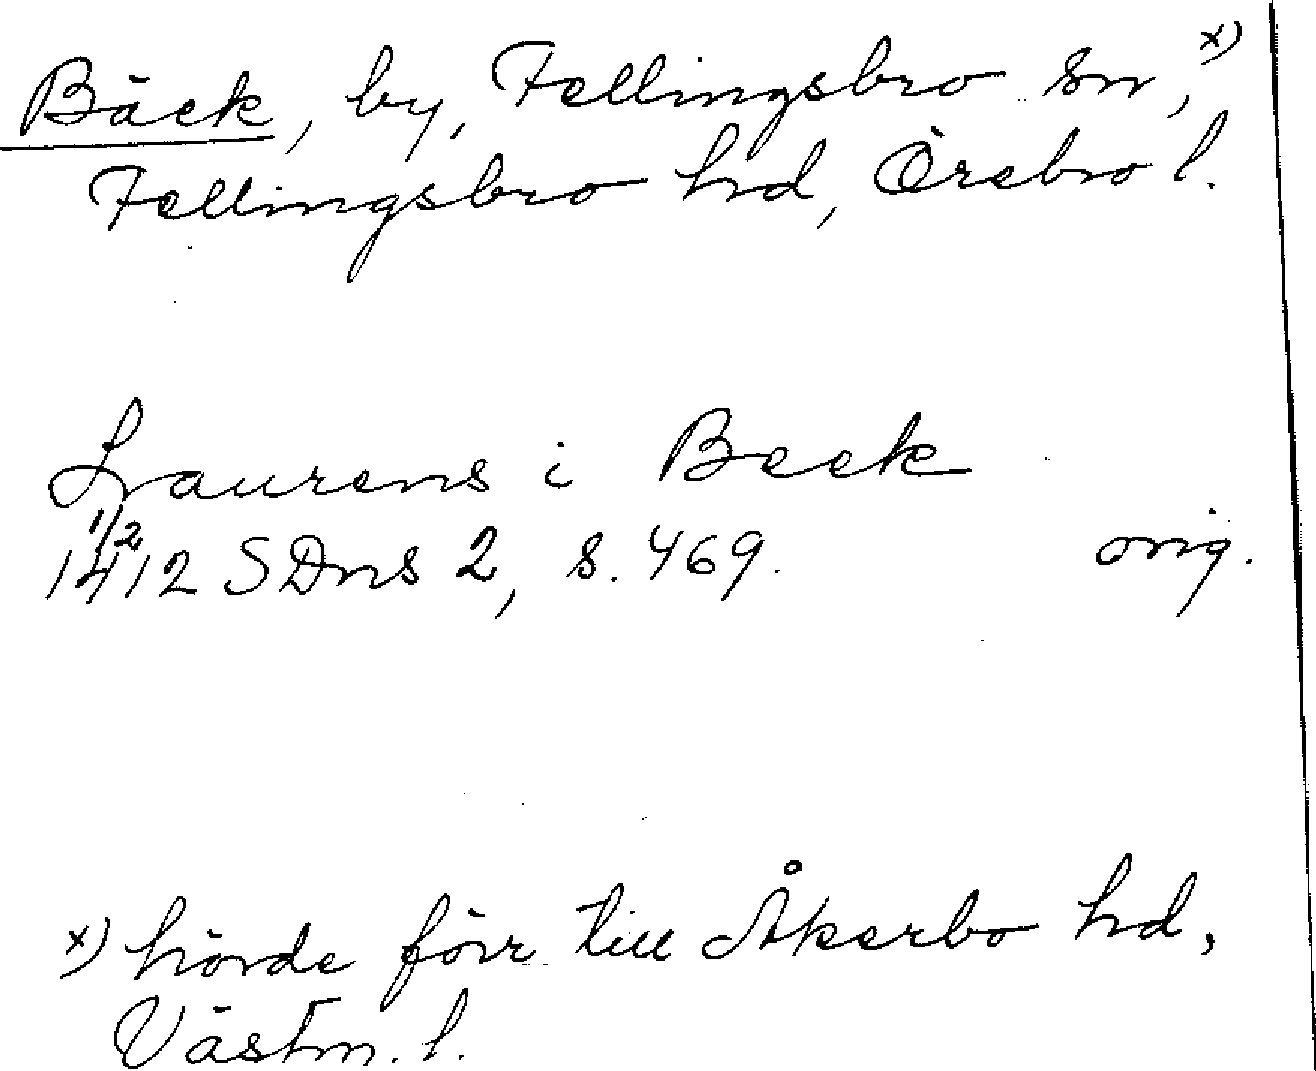 Bäck, by, Fellingsbro sn, x)
Fellingsbro hd, Örebro l.
Laurens i Beck
1/2
1412 SDns 2, s. 469. orig.
x) hörde förr till Åkerbo hd,
Västm. l.